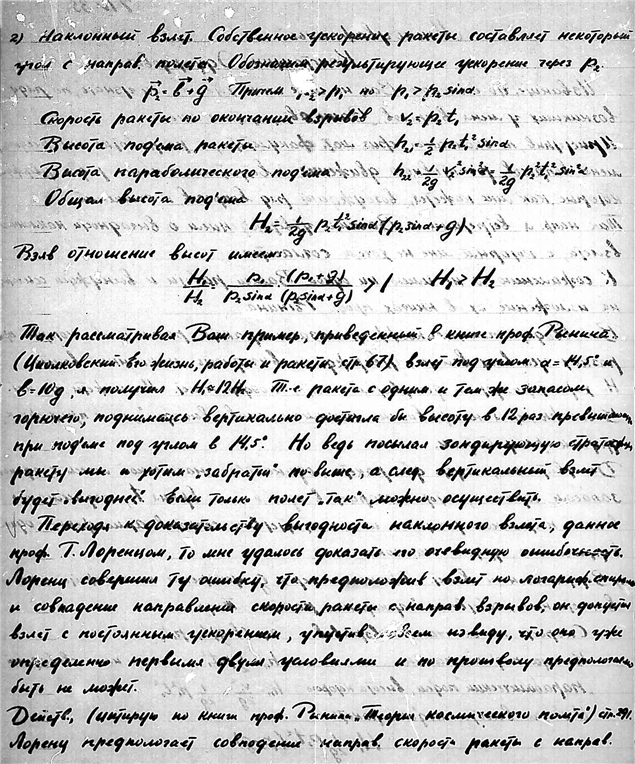 2) Наклонный взлет. Собственное ускорение ракеты составляет некоторый
угол с направ. полета. Обозначим результирующее ускорение через p₂
p⃗₂ = b⃗ + g Причем p₂ > p₁ но p₁ > p₂ sinα
Скорость ракеты по окончании взрывов v₂ = p₂t₁
Высота под'ема ракеты h₂₁ = ½ p₂t₁² sinα
Высота параболического под'ема h₂₂ = 1/2g v₂² sin²α = 1/2g p₂²t₁² sin²α
Общая высота под'ема
H₂ = 1/2g p₂t₁² sinα (p₂ sinα + g)
Взяв отношение высот имеем:
H₁/H₂ = p₁/p₂ sinα (p₁+g)/(p₂ sinα+g) > 1 H₁ > H₂
Так рассматривая Ваш пример, приведенный в книге проф. Рынина
(Циолковский его жизнь, работы и ракеты стр 67) взлет под углом α = 14,5° и
b = 10g, я получил H₁ ≈ 12H₂ Т.е ракета с одним и тем же запасом
горючего, поднимаясь вертикально достигла бы высоту в 12 раз
при под'еме под углом в 14,5° Но ведь посылая зондирующую
ракету мы и хотим „забраться" повыше, а след вертикальный взлет
будет „выгодней". Если только полет „так" можно осуществить.
Переходя к доказательству выгодности наклонного взлета, данное
проф. Г. Лоренцом, то мне удалось доказать его очевидную ошибочность.
Лоренц совершил ту ошибку, что предположив взлет по логариф. спирали
и совпадение направления скорости ракеты с направ. взрывов, он допустил
взлет с постоянным ускорением, упустив совсем из виду, что оно уже
определено первыми двумя условиями и по произволу предполагаемо
быть не может.
Действ, (цитирую по книге проф. Рынина „Теория космического полета") стр. 291.
Лоренц предполагает совпадение направ. скорости ракеты с направ.